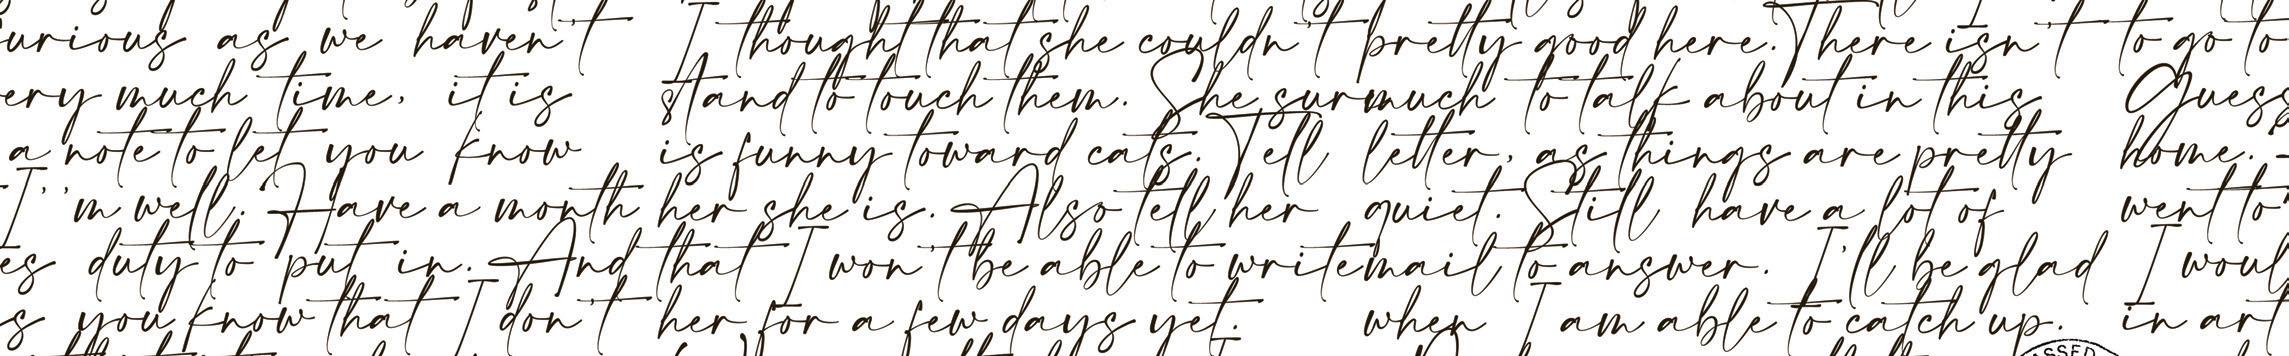 urious as we haven't I thought that she couldn't pretty good here. There isn't to go to
ery much time, it is stand to touch them. She surmuch to talk about in this Guess
a note to let you know is funny toward cats. Tell letter, as things are pretty home.
I''m well. Have a month her she is. Also tell her quiet. Still have a lot of went to
es duty to put in. And that I won't be able to writemail to answer. I'll be glad I woul
s you know that I don't her for a few days yet. when I am able to catch up. in art
ASSED